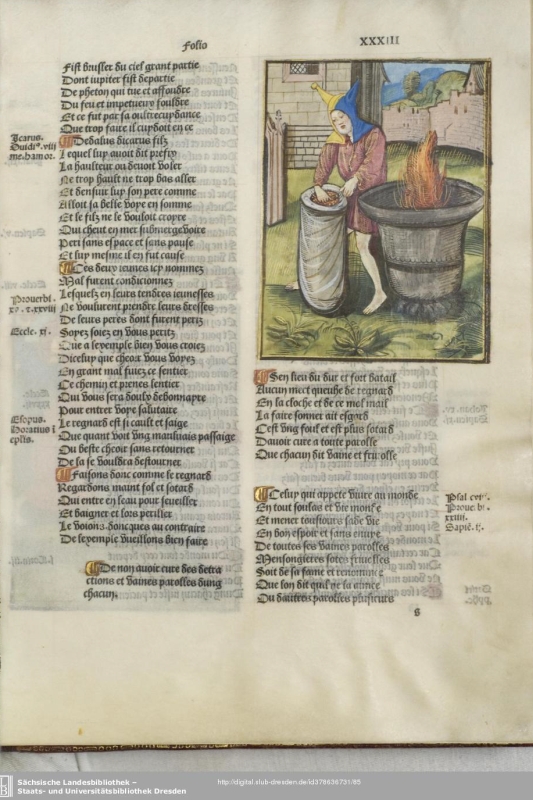 Folio
XXXIII
Fist brusler du ciel grant partie
Dont iupiter fist departie
De pheton qui tue et affondre
Du feu et impetueux fouldre
Et ce fut par sa oultrecuydance
Que trop faire il cuydoit en ce
Dedalus dicarus filz
Lequel luy auoit dit prefix
La haulteur ou deuoit voler
Ne trop hault ne trop bas aller
Et densuir luy son pere comme
Alloit sa belle voye en somme
Et le filz ne le vouloit croyre
Qui cheut en mer submergevoire
Peri sans espace et sans pause
Et luy mesme il en fut cause
Ces deux ieunes icy nommez
Mal furent condicionnez
Lesquelz en leurs tendres ieunesses
Ne voulurent prendre leurs dresses
De leurs peres dont furent peritz
Soyez soiez en vous peritz
Que a lexemple bien vous croiez
Dicelluy que cheox vous voyez
En grant mal fuiez ce sentier
Ce chemin et prenes lentier
Qui vous sera doulx debonnayre
Pour entrer voye salutaire
Le regnard est si cault et saige
Que quant voit vng mauluais passaige
Ou beste cheoit sans retourner
De la se vouldra destourner
Faisons donc comme le regnard
Regardons maint fol et sotard
Qui entre en leau pour sesueiller
Et baigner et lors perilier
Le voions doncques au contraire
De lexemple vueillons bien faire
De non auoir cure des detra
ctions et vaines parolles dung
chacun.
Icarus.
Ouidiº. viii
me. damor.
Prouerbi.
Eccle. xj.
Esopus.
Horatius i
eplis.
Sen lieu du dur et fort batail
Aucun met queuhe de regnard
En la cloche et de ce mol mail
La faire sonner ait esgard
Cest vng foul et est plus sotard
Dauoir cure a toute parolle
Que chacun dit vaine et friuolle
Celuy qui appete viure au monde
En tout soulas et vie monde
Et mener tousiours sade vie
En bon espoir et sans enuye
De toutes ses vaines parolles
Mensongieres sotes friuolles
Soit de sa fame et renommee
Que lon dit qual ne la aimee
Ou dautres parolles plusieurs
Psal
Proue.
xxiiii.
Sapie. ij.
Sächsische Landesbibliothek –
Staats- und Universitätsbibliothek Dresden
http://digital.slub-dresden.de/id378636731/85